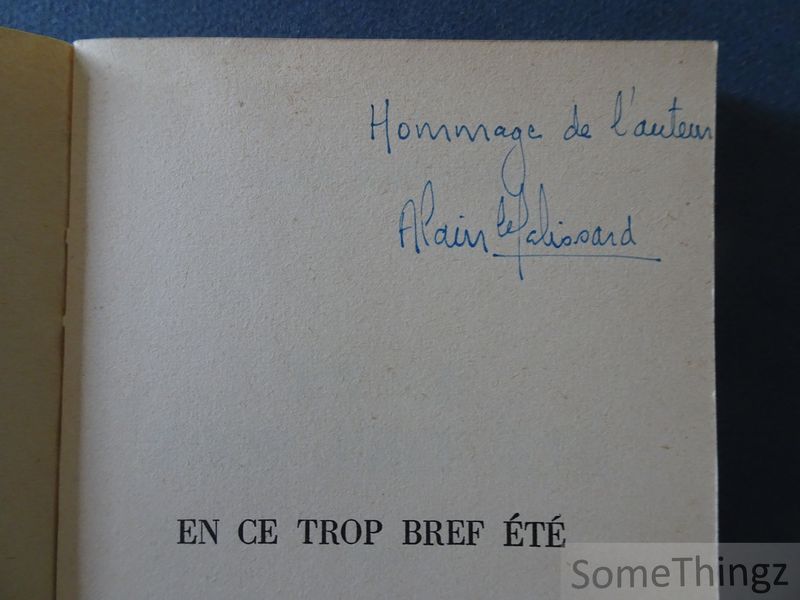 Hommage de l'auteur
Alain
EN CE TROP BREF ÉTÉ
SomeThingz